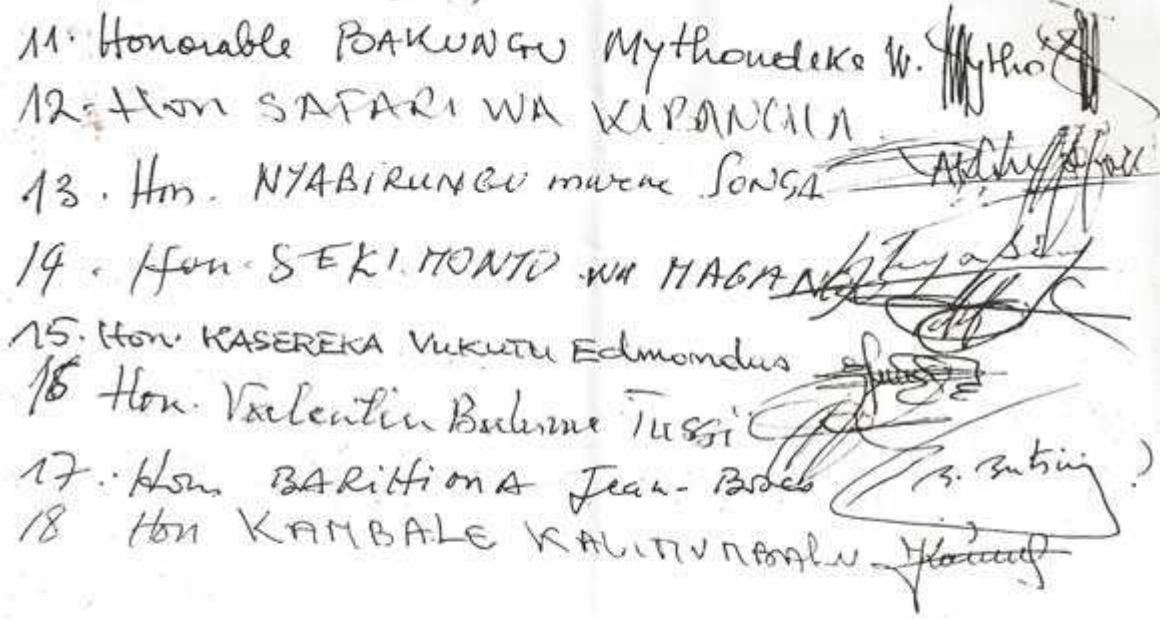 11. Honorable BAKUNGU Mythondeke W. Mytho
12. Hon SAFARI WA KIPANGILA
13. Hon. NYABIRUNGU mwene SONGA
14. Hon. SEKIMONYO WA MAGANGO
15. Hon. KASEREKA VUKUTU Edmondus
16 Hon. Valentin Tussi
17. Hon BARIHIONA Jean-Bosco B. Butsiny
18 Hon KAMBALE KALIMUMBALU